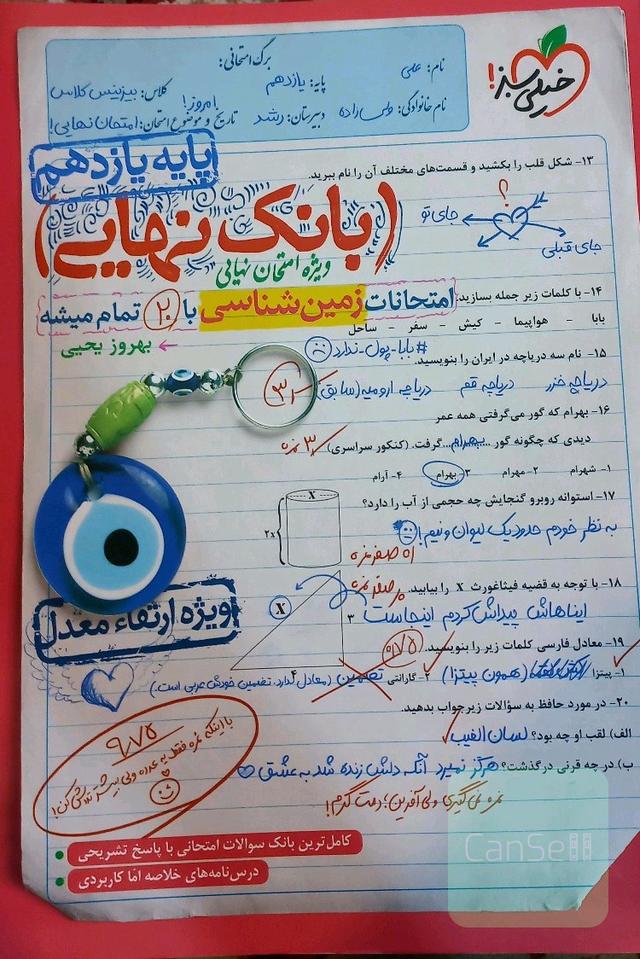 خیلی سبز!
برگ امتحانی:
نام: علی
پایه: یازدهم
کلاس: بیزینس کلاس
نام خانوادگی: ولی زاده
دبیرستان: رشد
تاریخ و موضوع امتحان: امروز! امتحان نهایی!
پایه یازدهم
(بانک نهایی)
ویژه امتحان نهایی
امتحانات زمین شناسی با ۲۰ تمام میشه
← بهروز یحیی
۱۳- شکل قلب را بکشید و قسمت‌های مختلف آن را نام ببرید.
؟
جای تو
جای قبلی
۱۴- با کلمات زیر جمله بسازید:
بابا - هواپیما - کیش - سفر - ساحل
#بابا-پول-ندارد
۱۵- نام سه دریاچه در ایران را بنویسید.
دریاچه خزر دریاچه قم دریاچه ارومیه (سابق)
۱۶- بهرام که گور می‌گرفتی همه عمر
دیدی که چگونه گور ...بهرام... گرفت. (کنکور سراسری) ۳ نمره
۱- شهرام ۲- مهرام ۳- بهرام ۴- آرام
۱۷- استوانه روبرو گنجایش چه حجمی از آب را دارد؟
X
2x
به نظر خودم حدود یک لیوان و نیم!
صفر نمره
۱۸- با توجه به قضیه فیثاغورث X را بیابید.
صفر نمره
X
۳
۴
ایناهاش پیداش کردم اینجاست
۱۹- معادل فارسی کلمات زیر را بنویسید.
۰/۷۵
۱- پیتزا (همون پیتزا) ۲- گارانتی تضمین (معادل ندارد. تضمین خودش عربی است.)
۲۰- در مورد حافظ به سؤالات زیر جواب بدهید.
الف) لقب او چه بود؟ لسان الغیب
ب) در چه قرنی درگذشت؟ هرگز نمیرد آنکه دلش زنده شد به عشق
نمره نمی‌گیری ولی آفرین؛ دمت گرم!
ویژه ارتقاء معدل
۹/۷۵
با اینکه نمره فقط یه عدده ولی بیشتر تلاش کن!
کامل‌ترین بانک سوالات امتحانی با پاسخ تشریحی
درس‌نامه‌های خلاصه امّا کاربردی
CanSell